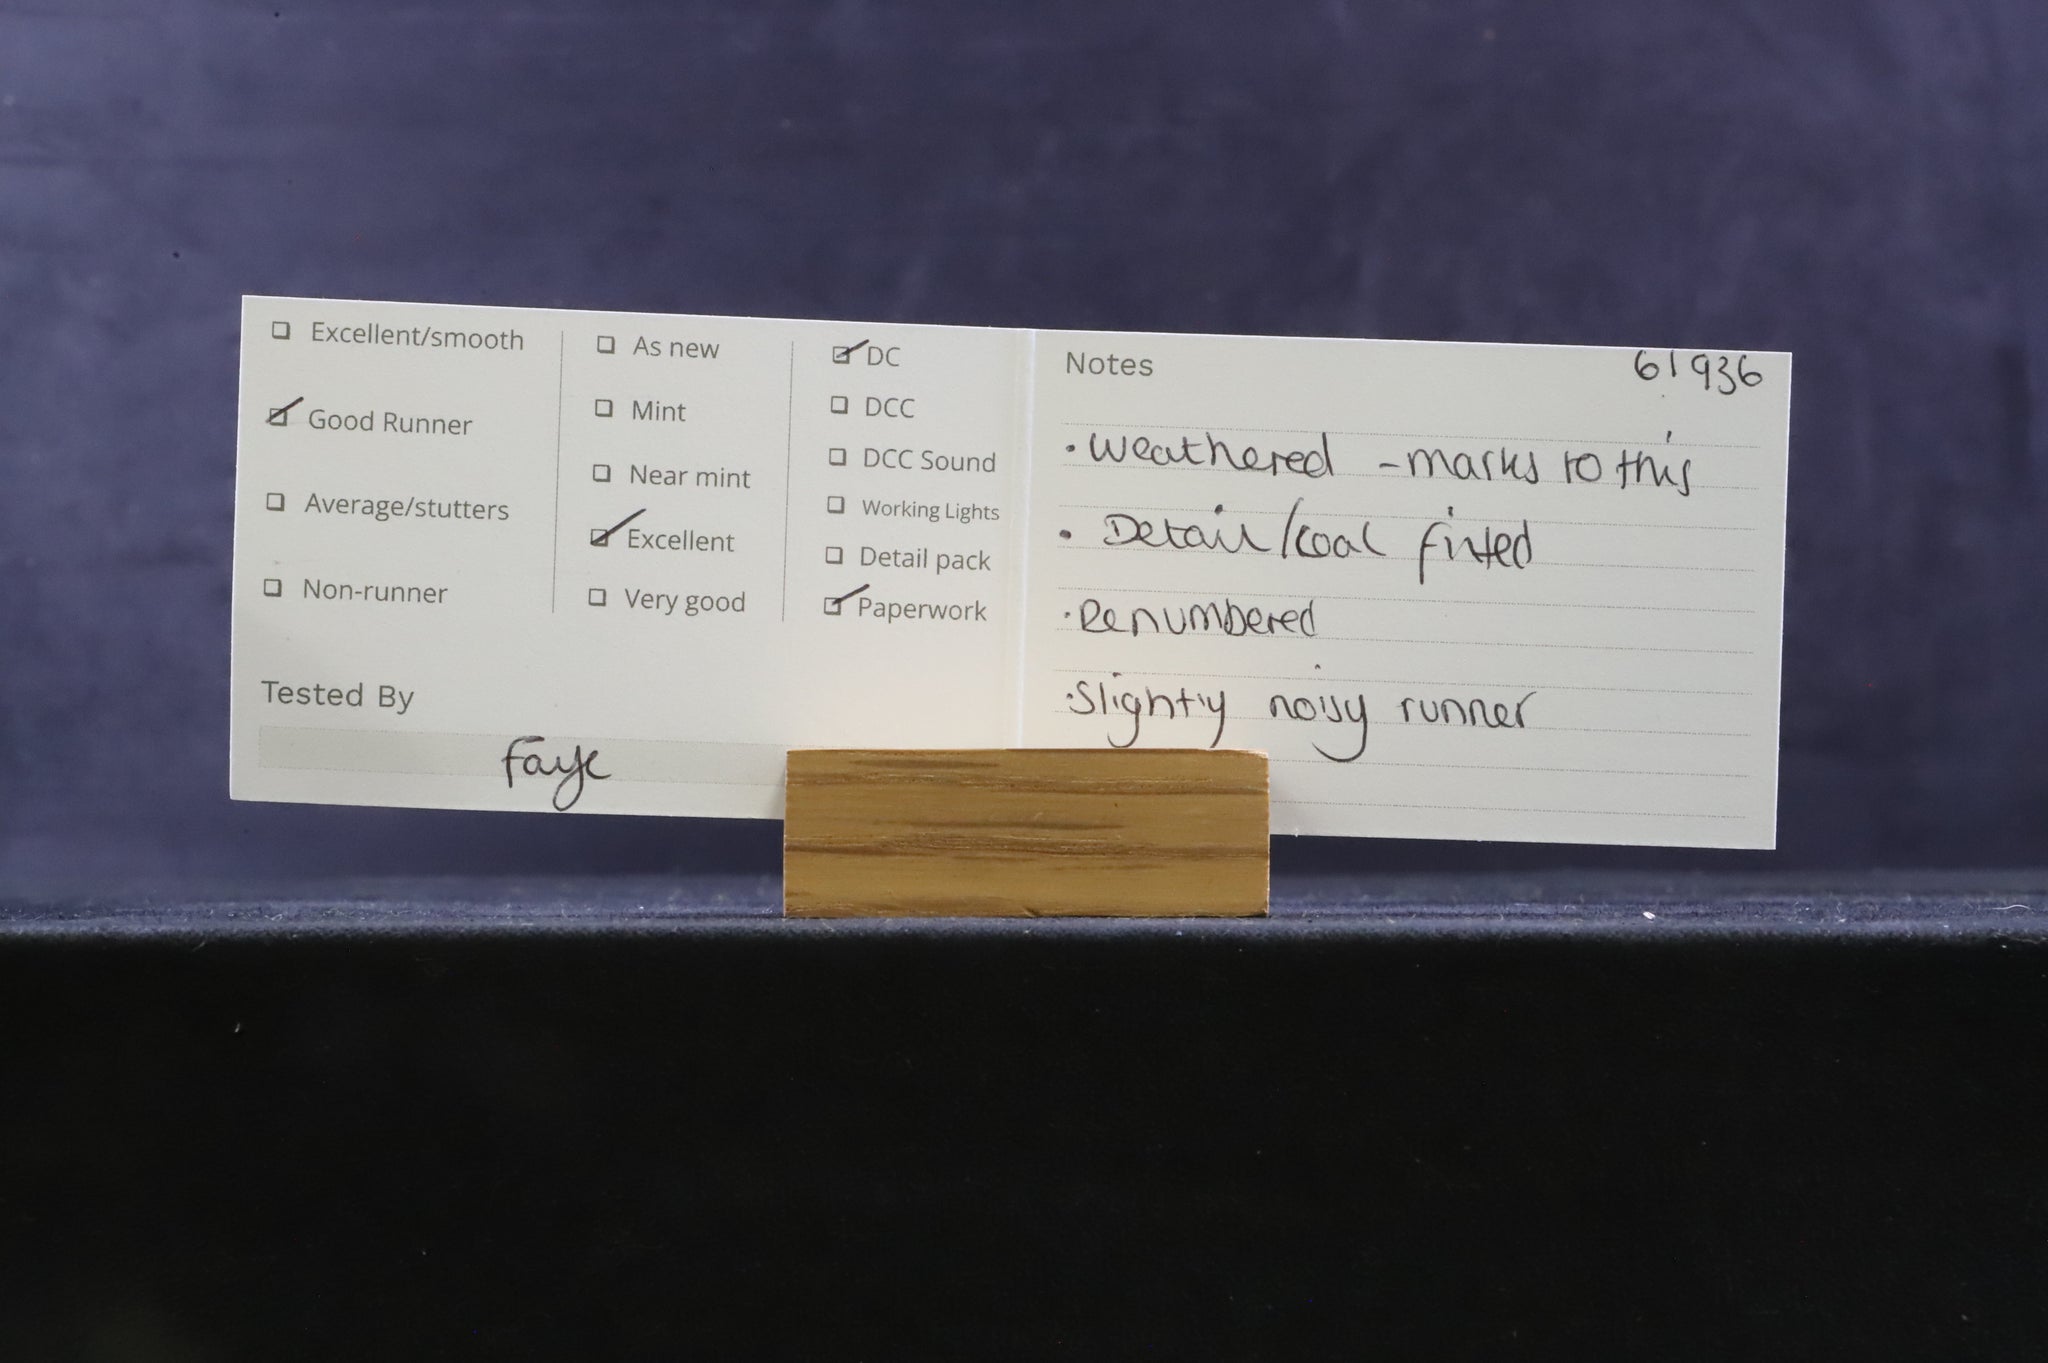 ☐ Excellent/smooth
☑ Good Runner
☐ Average/stutters
☐ Non-runner
☐ As new
☐ Mint
☐ Near mint
☑ Excellent
☐ Very good
☑ DC
☐ DCC
☐ DCC Sound
☐ Working Lights
☐ Detail pack
☑ Paperwork
Tested By
Faye
Notes 61936
• Weathered - marks to this
• Detail/coal fitted
• Renumbered
• Slightly noisy runner